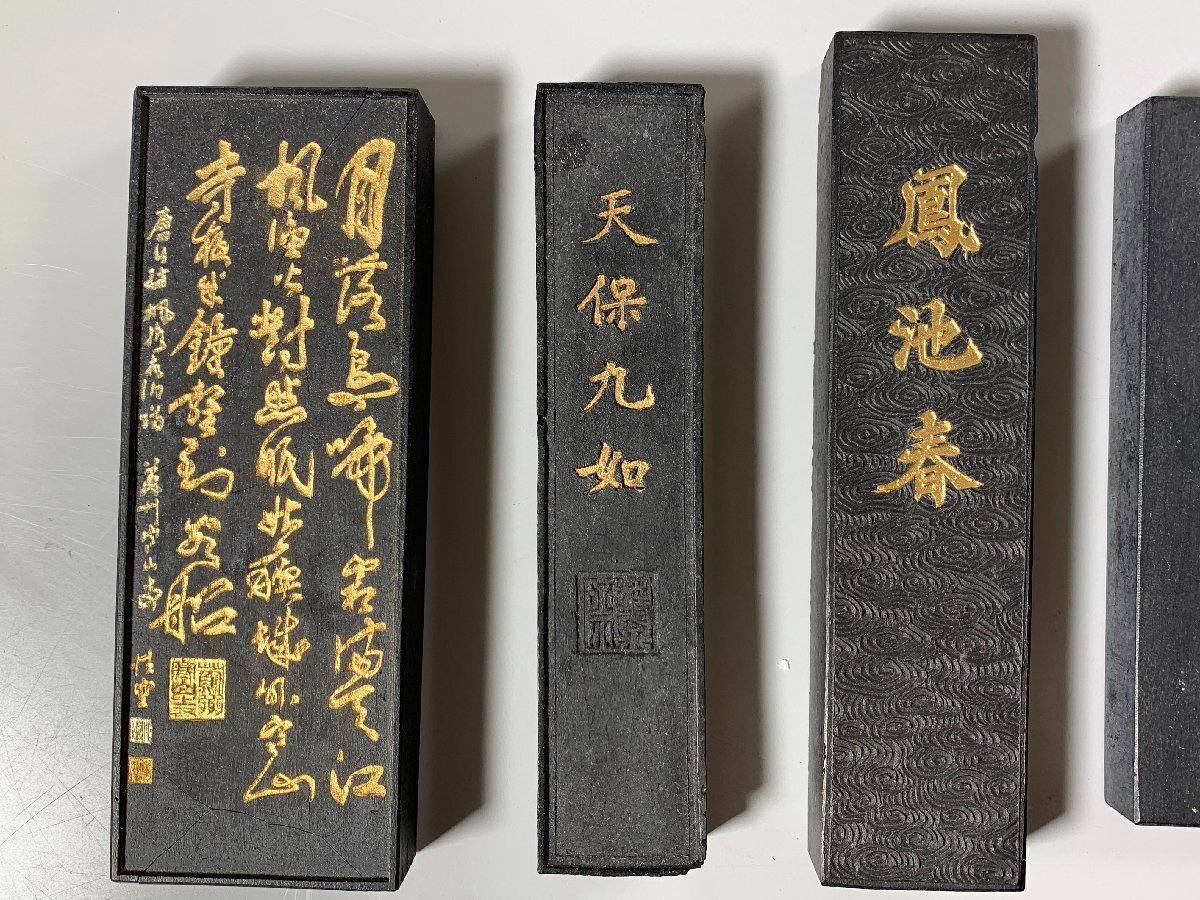 月落烏啼霜滿天江
楓漁火對愁眠姑蘇城外寒山
寺夜半鐘聲到客船
唐張繼楓橋夜泊詩 蘇州寒山寺 性空
天保九如
鳳池春